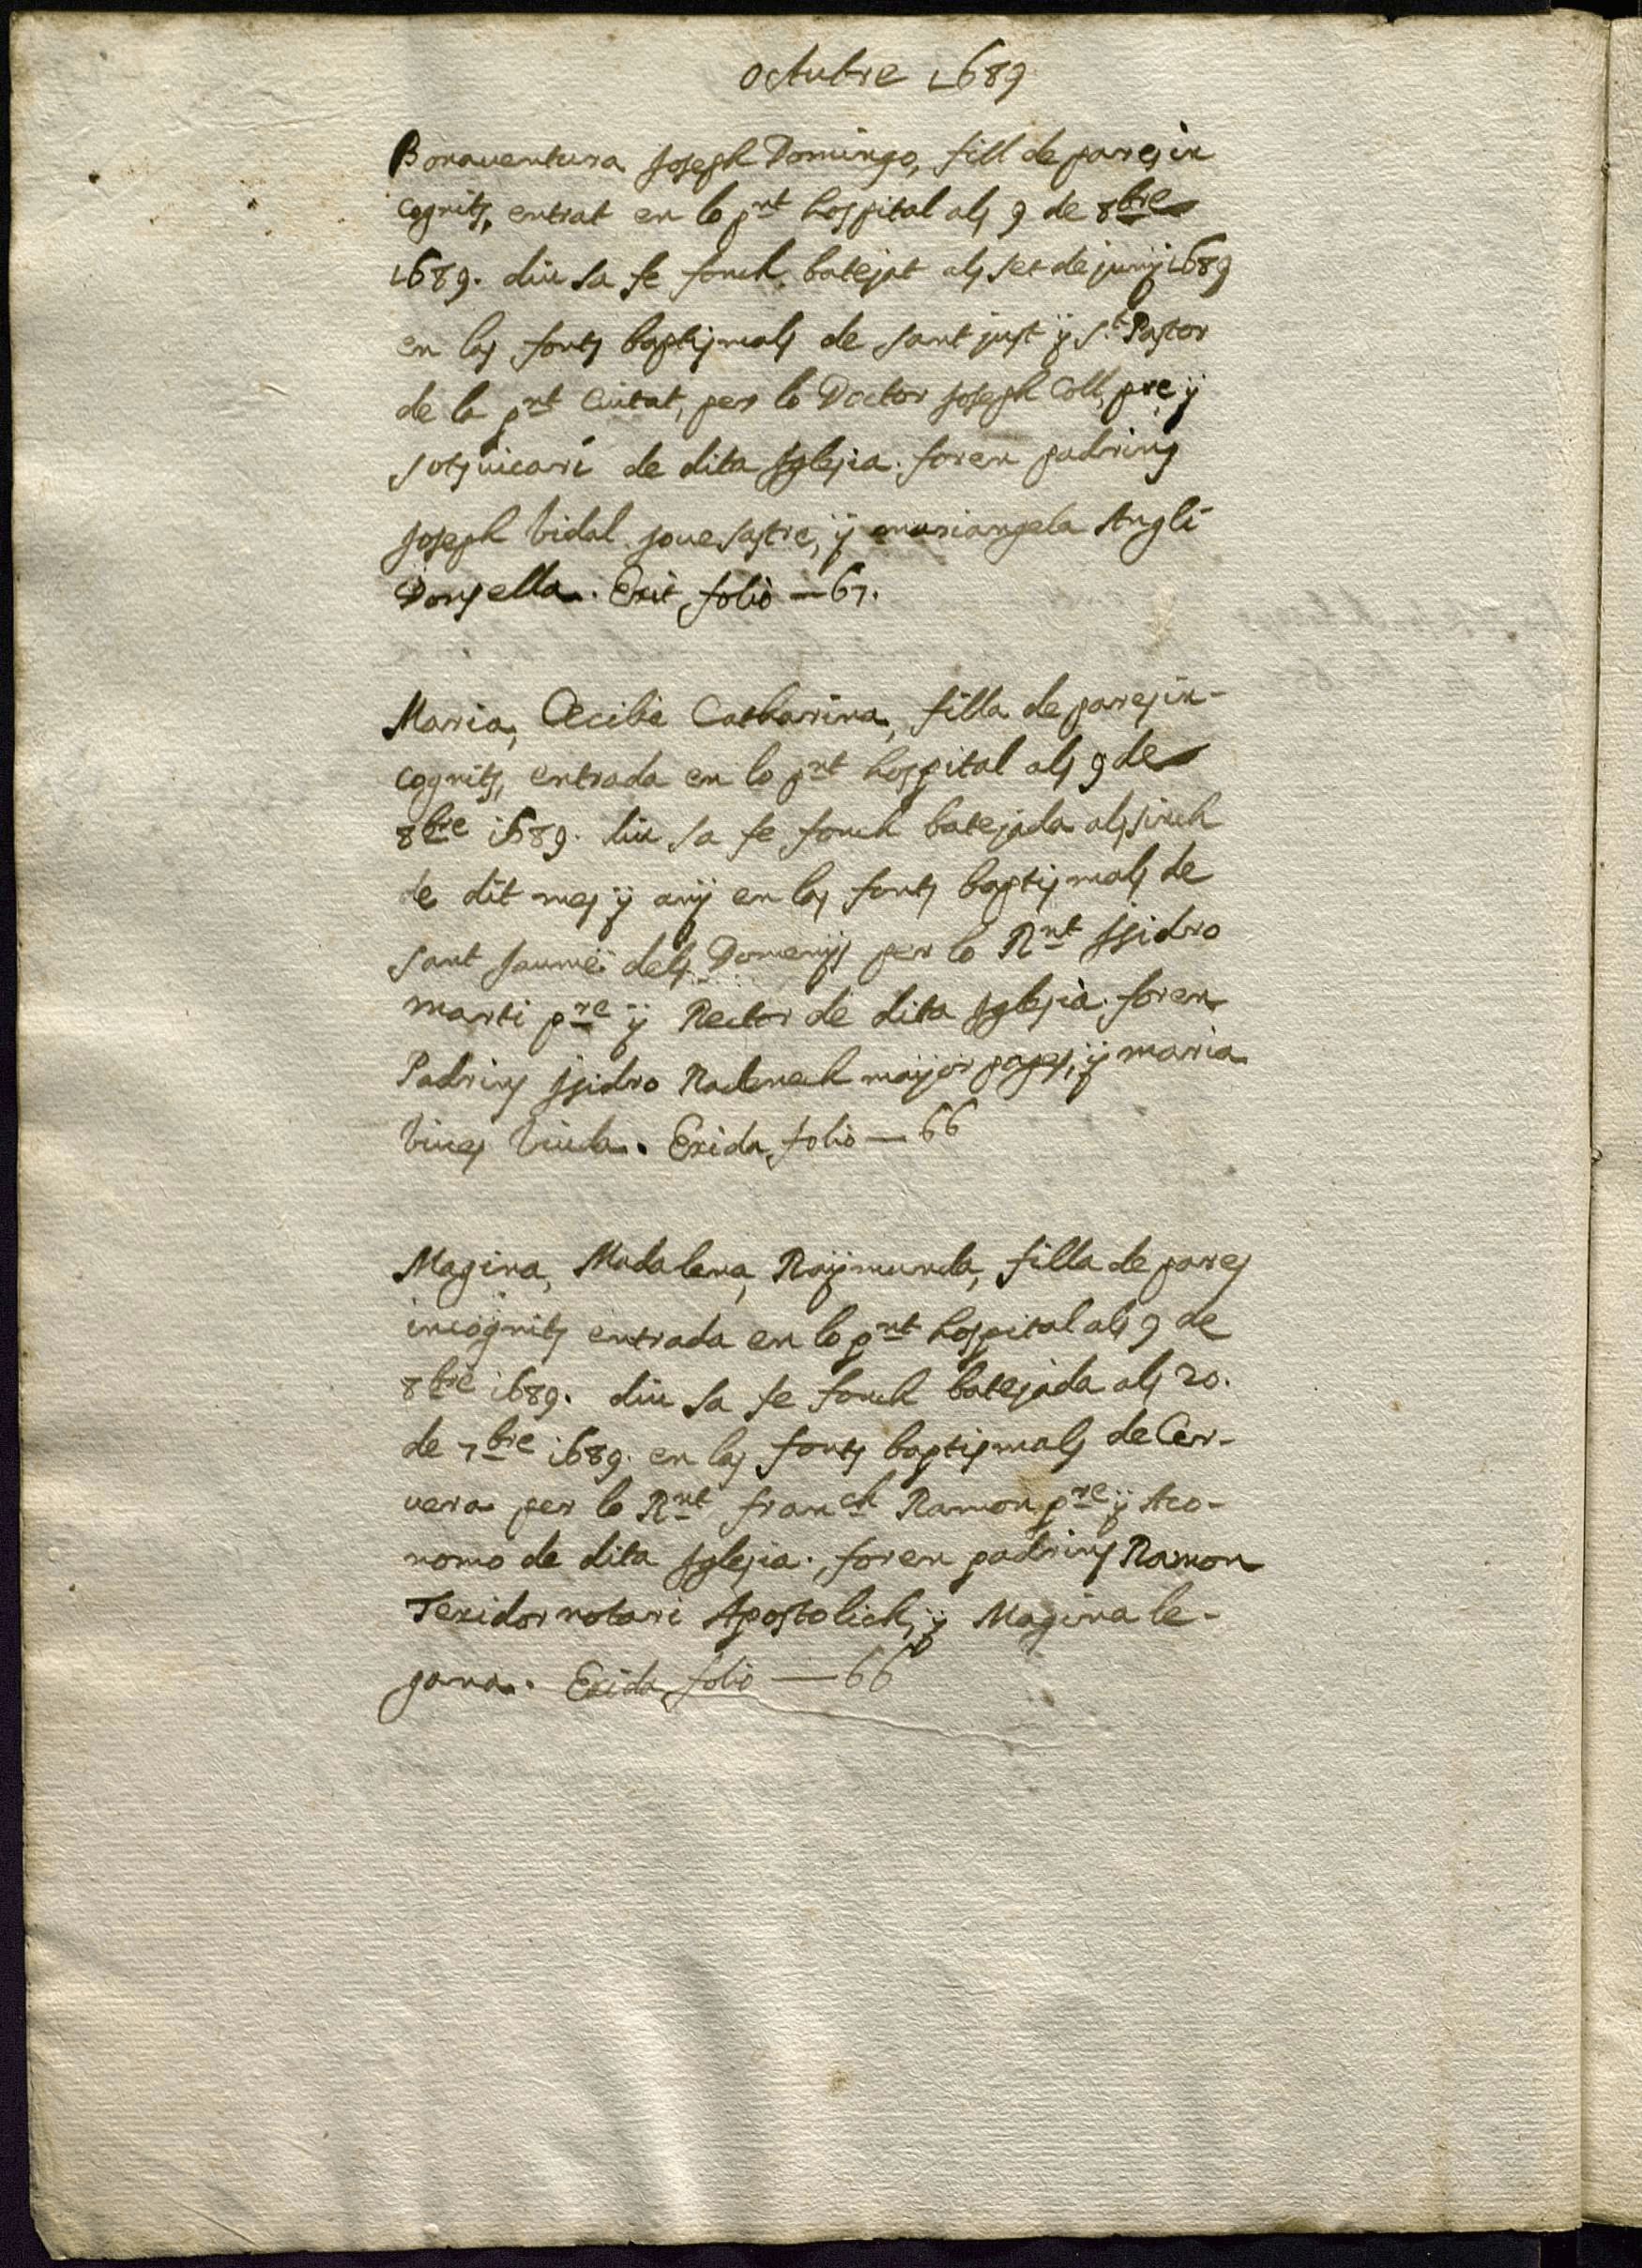 octubre 1689
Bonaventura Joseph Domingo, fill de pares in
cognits, entrat en lo pnt hospital als 9 de 8bre
1689. diu sa fe fonch batejat als set de juny 1689
en las fonts baptismals de sant just ÿ St. Pastor
de la pnt Ciutat, per lo Doctor Joseph Coll, pre ÿ
sotsvicari de dita Iglesia. foren padrins
Joseph Vidal jove sastre, ÿ mariangela Angli
Donsella. Exit, folio — 67.
Maria, Cecilia Catharina, filla de pares in-
cognits, entrada en lo pnt hospital als 9 de
8bre 1689. diu sa fe fonch batejada als sinch
de dit mes ÿ anÿ en las fonts baptismals de
sant Jaume dels Domenÿs per lo Rnt Isidro
marti pre ÿ Rector de dita Iglesia. foren
Padrins Isidro Radenech maÿor pages, ÿ maria
Vives Viuda. Exida, folio — 66
Magina, Madalena, Raÿmunda, filla de pares
incognits entrada en lo pnt hospital als 9 de
8bre 1689. diu sa fe fonch batejada als 20.
de 7bre 1689. en las fonts baptismals de Cer-
vera per lo Rnt franch Ramon pre ÿ Aco-
nomo de dita Iglesia. foren padrins Ramon
Texidor notari Apostolich, ÿ Magina le-
gana. Exida folio — 66